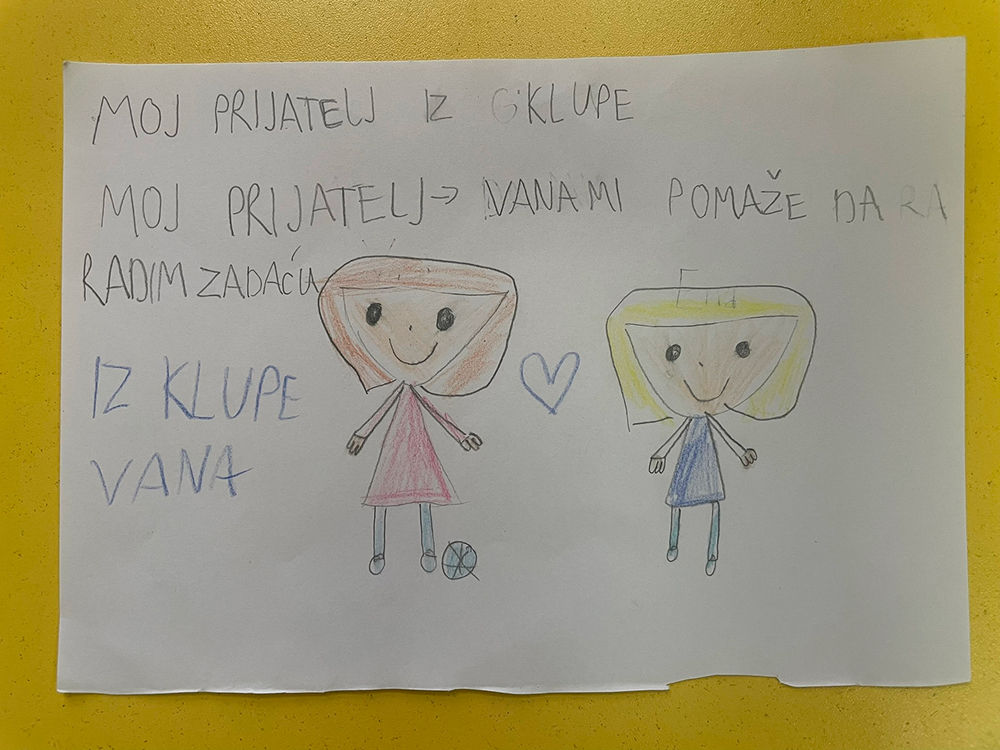 MOJ PRIJATELJ IZ KLUPE
MOJ PRIJATELJ VANA MI POMAŽE DA RA
RADIM ZADAĆU
IZ KLUPE
VANA